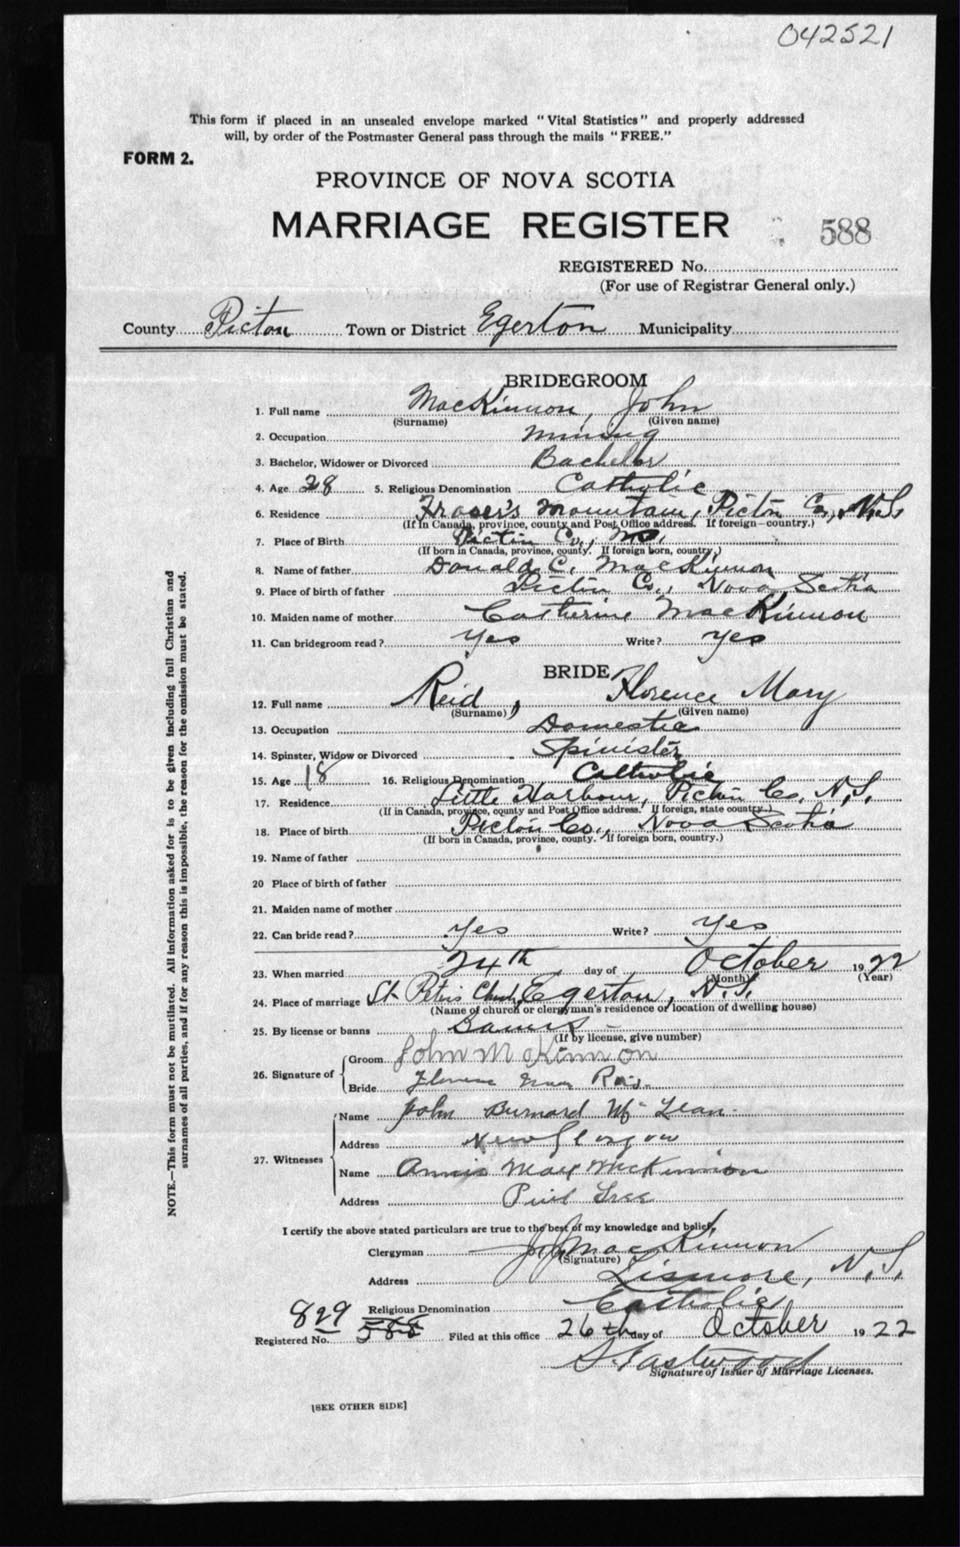 042521
This form if placed in an unsealed envelope marked "Vital Statistics" and properly addressed
will, by order of the Postmaster General pass through the mails "FREE."
FORM 2.
PROVINCE OF NOVA SCOTIA
MARRIAGE REGISTER
588
REGISTERED No.
(For use of Registrar General only.)
County Pictou Town or District Egerton Municipality
BRIDEGROOM
1. Full name MacKinnon, John
(Surname) (Given name)
2. Occupation Mining
3. Bachelor, Widower or Divorced Bachelor
4. Age 28 5. Religious Denomination Catholic
6. Residence Fraser's Mountain, Pictou Co., N.S.
(If in Canada, province, county and Post Office address. If foreign—country.)
7. Place of Birth Pictou Co., N.S.
(If born in Canada, province, county. If foreign born, country.)
8. Name of father Donald C. MacKinnon
9. Place of birth of father Pictou Co., Nova Scotia
10. Maiden name of mother Catherine MacKinnon
11. Can bridegroom read? Yes Write? Yes
BRIDE
12. Full name Reid, Florence Mary
(Surname) (Given name)
13. Occupation Domestic
14. Spinster, Widow or Divorced Spinister
15. Age 18 16. Religious Denomination Catholic
17. Residence Little Harbour, Pictou Co. N.S.
(If in Canada, province, county and Post Office address. If foreign, state country.)
18. Place of birth Pictou Co., Nova Scotia
(If born in Canada, province, county. If foreign born, country.)
19. Name of father
20 Place of birth of father
21. Maiden name of mother
22. Can bride read? Yes Write? Yes
23. When married 24th day of October 1922
(Month) (Year)
24. Place of marriage St. Peter's Church, Egerton, N.S.
(Name of church or clergyman's residence or location of dwelling house)
25. By license or banns Banns
(If by license, give number)
26. Signature of
Groom John McKinnon
Bride Florence Mary Reid
27. Witnesses
Name John Burnard Mc Lean
Address New Glasgow
Name Annie May MacKinnon
Address Pine Tree
I certify the above stated particulars are true to the best of my knowledge and belief,
Clergyman J. J. MacKinnon
(Signature)
Address Lismore, N.S.
Religious Denomination Catholic
829
Registered No. 588 Filed at this office 26th day of October 1922
S. Eastwood
Signature of Issuer of Marriage Licenses.
[SEE OTHER SIDE]
NOTE.—This form must not be mutilated. All information asked for is to be given including full Christian and
surnames of all parties, and if for any reason this is impossible, the reason for the omission must be stated.